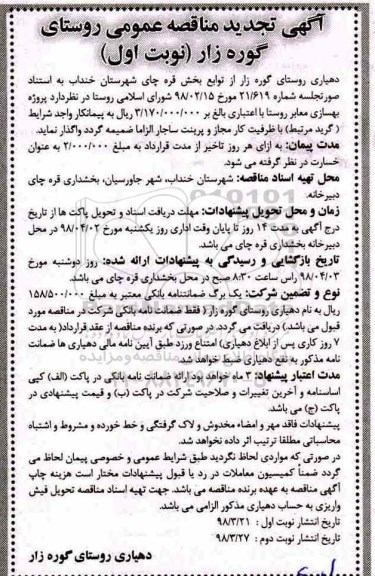 آگهی تجدید مناقصه عمومی روستای
گوره زار (نوبت اول)
دهیاری روستای گوره زار از توابع بخش قره چای شهرستان خنداب به استناد
صورتجلسه شماره ۲۱/۶۱۹ مورخ ۹۸/۰۲/۱۵ شورای اسلامی روستا در نظردارد پروژه
بهسازی معابر روستا با اعتباری بالغ بر ۳/۱۷۰/۰۰۰/۰۰۰ ریال به پیمانکار واجد شرایط
( گرید مرتبط) با ظرفیت کار مجاز و پرینت ساجار الزاما ضمیمه گردد واگذار نماید.
مدت پیمان: به ازای هر روز تاخیر از مدت قرارداد به مبلغ ۲/۰۰۰/۰۰۰ به عنوان
خسارت در نظر گرفته می شود.
محل تهیه اسناد مناقصه: شهرستان خنداب، شهر جاورسیان، بخشداری قره چای
دبیرخانه.
زمان و محل تحویل پیشنهادات: مهلت دریافت اسناد و تحویل پاکت ها از تاریخ
درج آگهی به مدت ۱۴ روز تا پایان وقت اداری روز یکشنبه مورخ ۹۸/۰۴/۰۲ در محل
دبیرخانه بخشداری قره چای می باشد.
تاریخ بازگشایی و رسیدگی به پیشنهادات ارائه شده: روز دوشنبه مورخ
۹۸/۰۴/۰۳ راس ساعت ۸:۳۰ صبح در محل بخشداری قره چای می باشد.
نوع و تضمین شرکت: یک برگ ضمانتنامه بانکی معتبر به مبلغ ۱۵۸/۵۰۰/۰۰۰
ریال به نام دهیاری روستای گوره زار ( فقط ضمانت نامه بانکی شرکت در مناقصه مورد
قبول می باشد.) دریافت می گردد. در صورتی که برنده مناقصه از عقد قرارداد( به مدت
۷ روز کاری پس از ابلاغ دهیاری) امتناع ورزد طبق آیین نامه مالی دهیاری ها ضمانت
نامه مذکور به نفع دهیاری ضبط خواهد شد.
مدت اعتبار پیشنهاد: ۳ ماه خواهد بود ارائه ضمانت نامه بانکی در پاکت (الف) کپی
اساسنامه و آخرین تغییرات و صلاحیت شرکت در پاکت (ب) و قیمت پیشنهادی در
پاکت (ج) می باشد.
پیشنهادات فاقد مهر و امضاء مخدوش و لاک گرفتگی و خط خورده و مشروط و اشتباه
محاسباتی مطلقا ترتیب اثر داده نخواهد شد.
در صورتی که مواردی لحاظ نگردید طبق شرایط عمومی و خصوصی پیمان لحاظ می
گردد ضمناً کمیسیون معاملات در رد یا قبول پیشنهادات مختار است هزینه چاپ
آگهی مناقصه به عهده برنده مناقصه می باشد. جهت تهیه اسناد مناقصه تحویل فیش
واریزی به حساب دهیاری مذکور الزامی می باشد.
تاریخ انتشار نوبت اول : ۹۸/۳/۲۱
تاریخ انتشار نوبت دوم : ۹۸/۳/۲۷
دهیاری روستای گوره زار